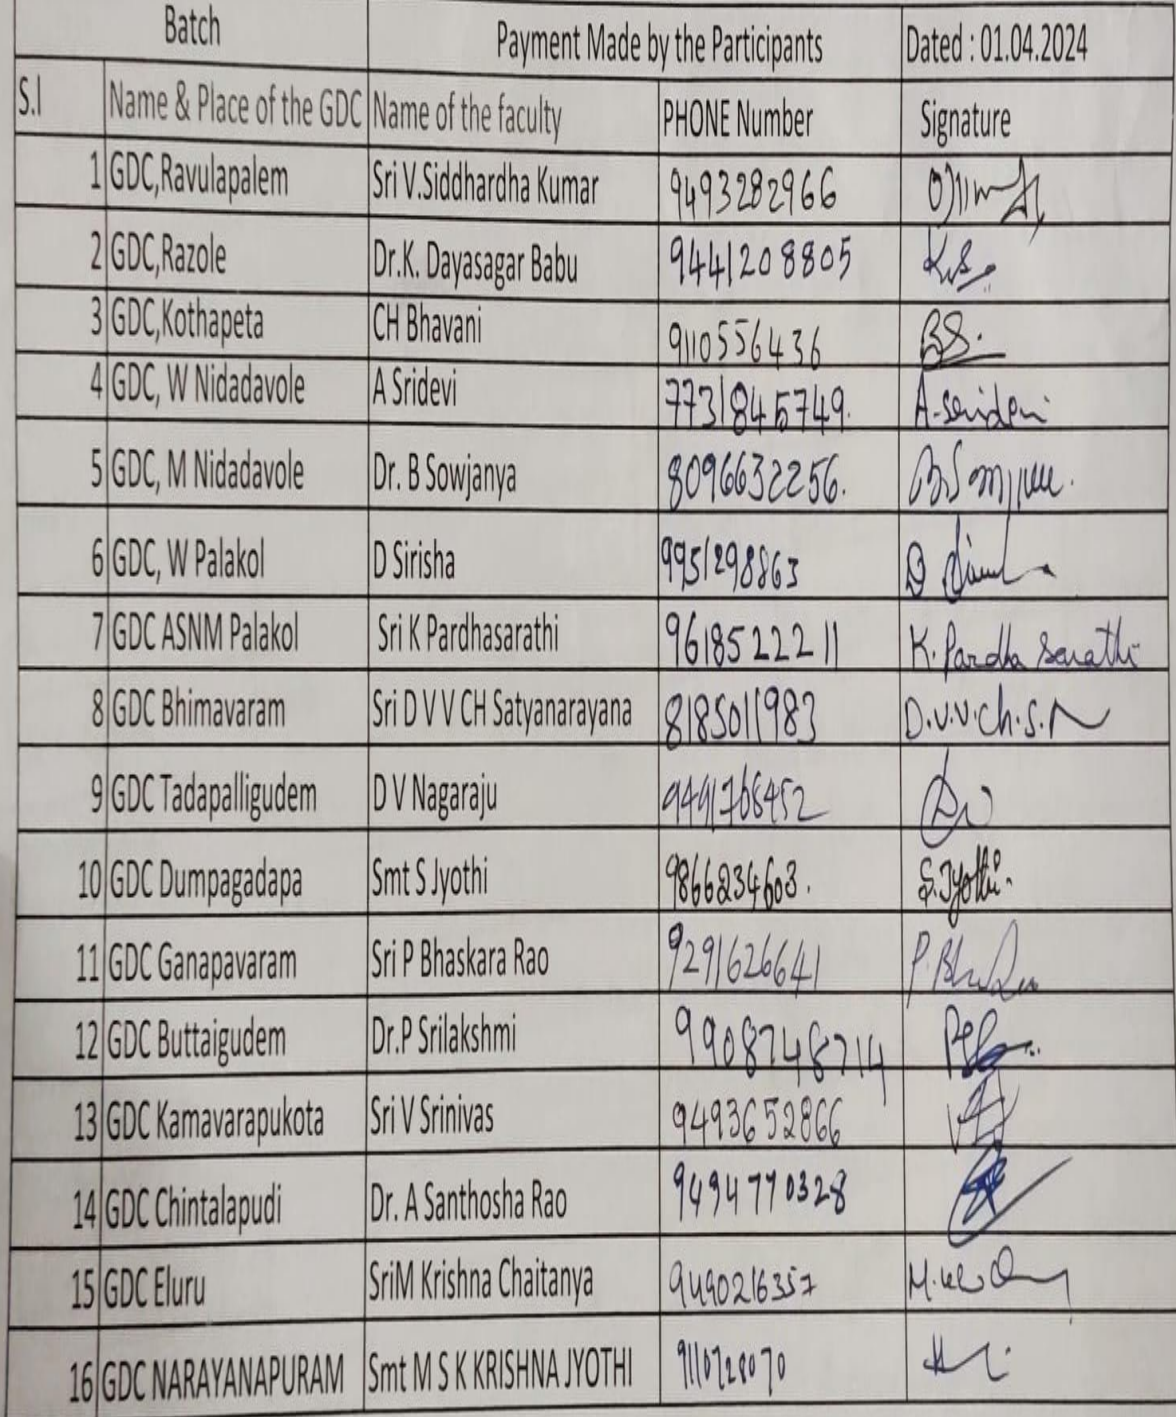 Batch Payment Made by the Participants Dated : 01.04.2024
S.I Name & Place of the GDC Name of the faculty PHONE Number Signature
1 GDC,Ravulapalem Sri V.Siddhardha Kumar 9493282966
2 GDC,Razole Dr.K. Dayasagar Babu 9441208805
3 GDC,Kothapeta CH Bhavani 9110556436 BS.
4 GDC, W Nidadavole A Sridevi 7731845749. A-Sridevi
5 GDC, M Nidadavole Dr. B Sowjanya 8096632256.
6 GDC, W Palakol D Sirisha 9951298863 D
7 GDC ASNM Palakol Sri K Pardhasarathi 9618522211 K. Pardha Sarathi
8 GDC Bhimavaram Sri D V V CH Satyanarayana 8185011983 D.V.V.Ch.S.N
9 GDC Tadapalligudem D V Nagaraju 9491768452
10 GDC Dumpagadapa Smt S Jyothi 9866234603. S.Jyothi.
11 GDC Ganapavaram Sri P Bhaskara Rao 9291626641
12 GDC Buttaigudem Dr.P Srilakshmi 9908748714
13 GDC Kamavarapukota Sri V Srinivas 9493652866
14 GDC Chintalapudi Dr. A Santhosha Rao 9494770328
15 GDC Eluru SriM Krishna Chaitanya 9490216357
16 GDC NARAYANAPURAM Smt M S K KRISHNA JYOTHI 9110728070